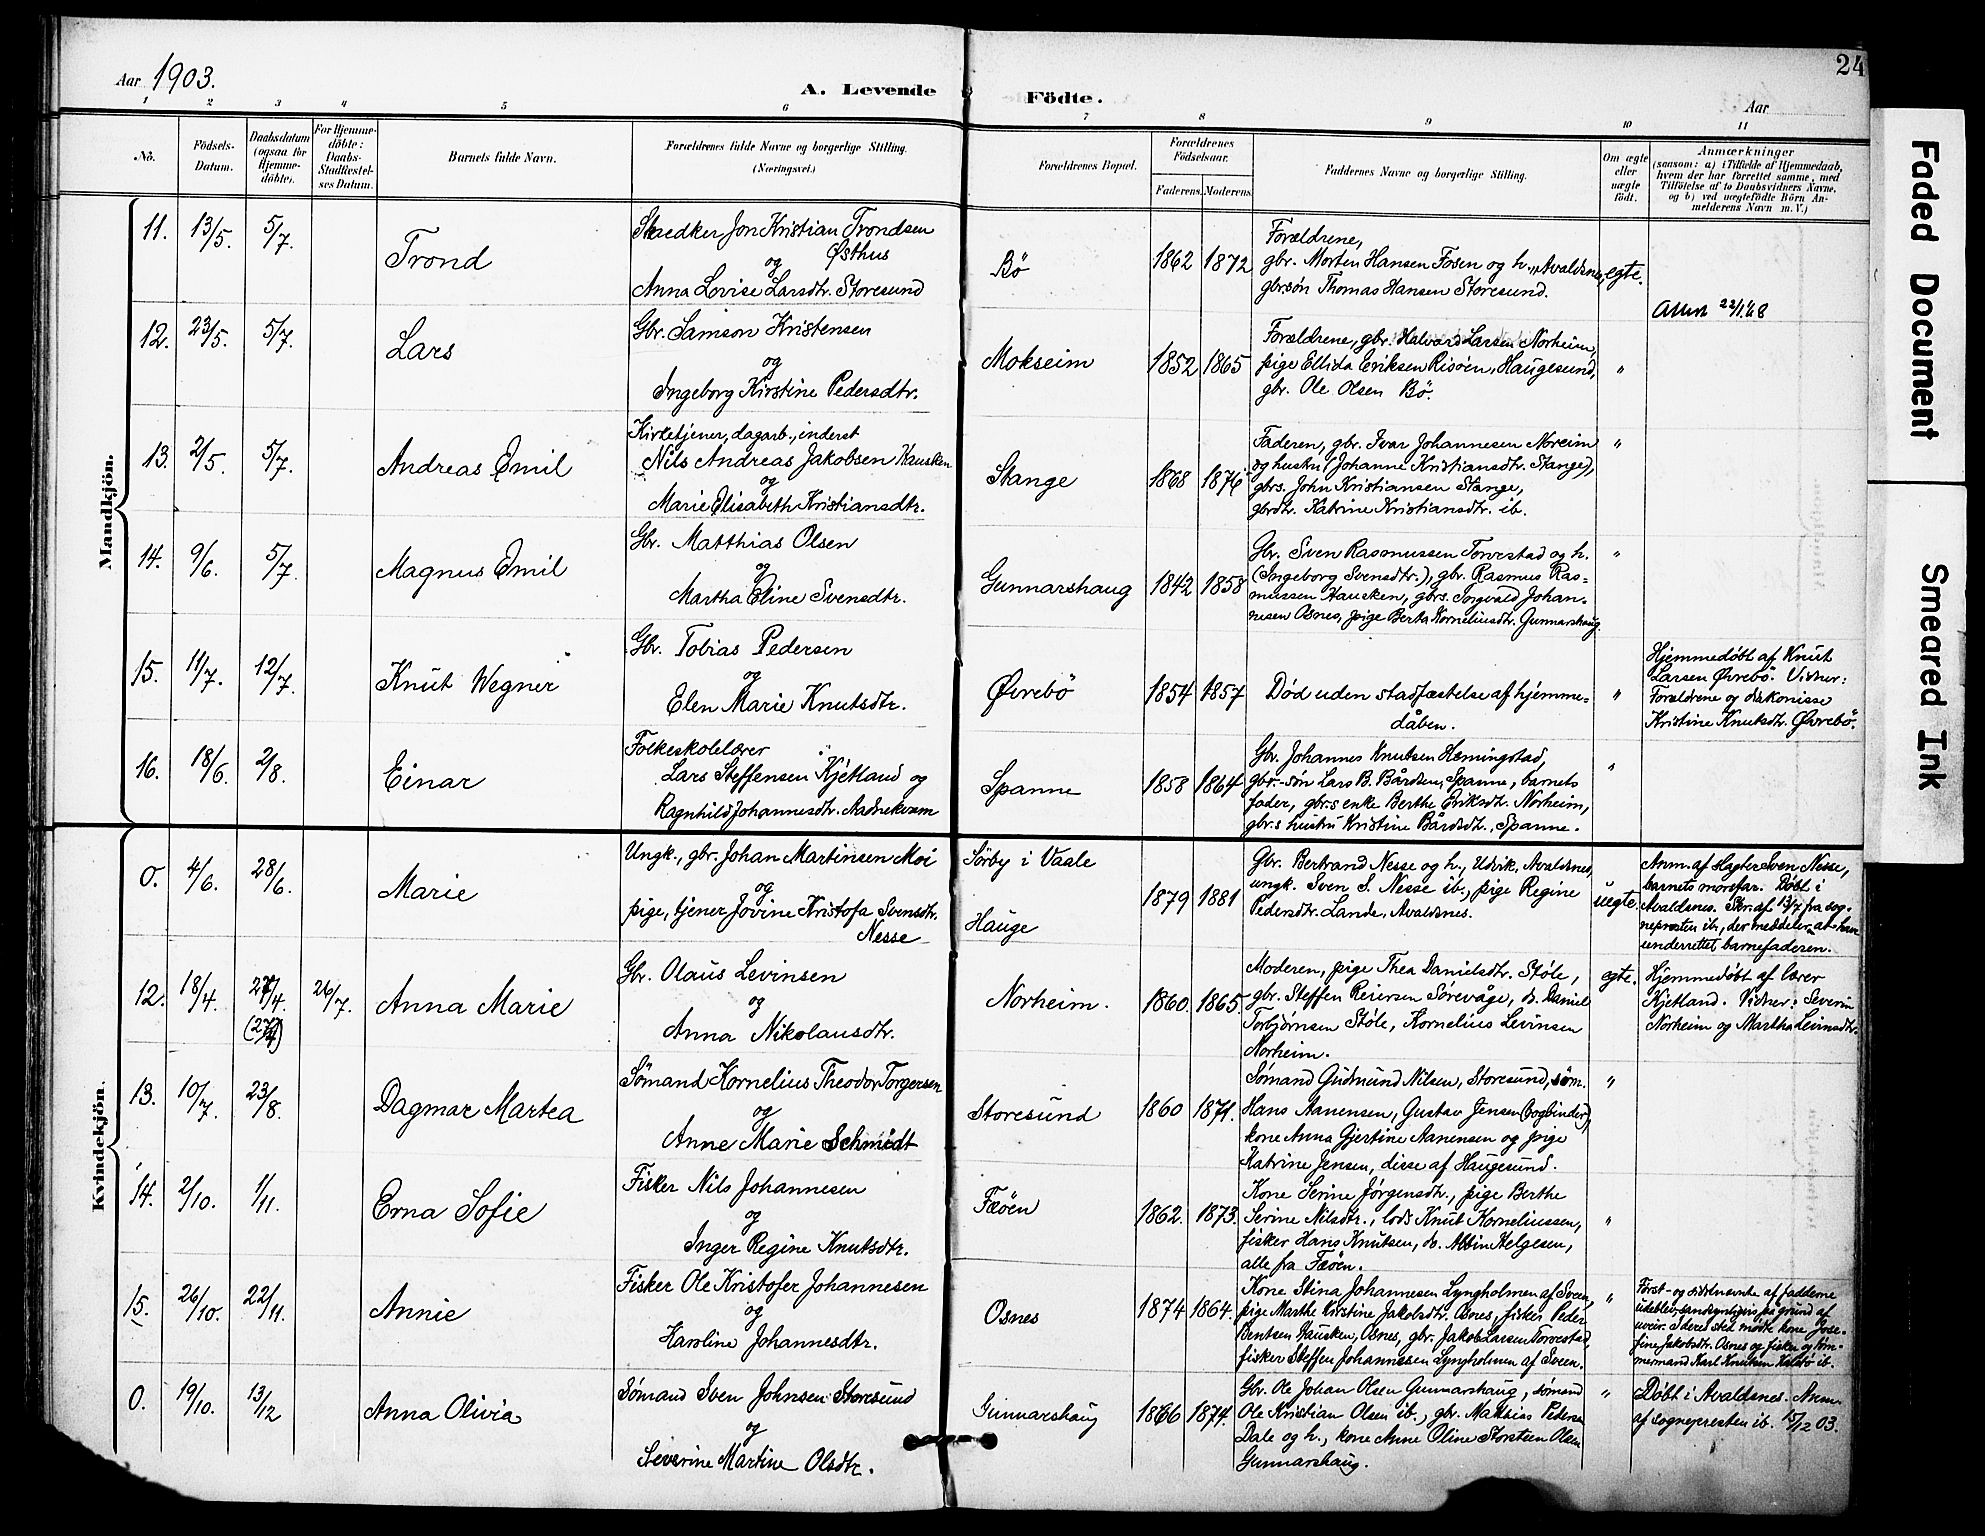 Aar 1903.
A. Levende Födte.
Aar
24
1 2 3 4 5 6 7 8 9 10 11
No.
Födsels-
Datum.
Daabsdatum
(ogsaa for
Hjemme-
döbte).
For Hjemme-
döbte:
Daabs-
Stadfestel-
ses Datum.
Barnets fulde Navn.
Forældrenes fulde Navne og borgerlige Stilling.
(Næringsvei.)
Forældrenes Bopæl.
Forældrenes
Födselsaar.
Faderens. Moderens.
Faddernes Navne og borgerlige Stilling.
Om ægte
eller
uægte
födt.
Anmærkninger
(saasom: a) i Tilfælde af Hjemmedaab,
hvem der har forrettet samme, med
Tilföielse af to Daabsvidners Navne,
og b) ved uægtefödte Börn An-
melderens Navn m. V.)
Mandkjön.
11. 13/5. 5/7.
Trond
Skrædker Jon Kristian Trondsen
Østhus
og
Anna Lovise Larsdtr. Storesund
Bö
1862 1872
Forældrene,
gbr. Morten Hansen Fosen og h., Avaldsnes,
gbrsön Thomas Hansen Storesund.
egte.
12. 23/5. 5/7.
Lars
Gbr. Samson Kristensen
og
Ingeborg Kirstine Pedersdtr.
Mokseim
1852 1865
Forældrene, gbr. Halvard Larsen Norheim,
pige Ellida Eriksen Risöen, Haugesund,
gbr. Ole Olsen Bö.
"
13. 2/5. 5/7.
Andreas Emil
Kirketjener, dagarb., inderst
Nils Andreas Jakobsen Hausken
og
Marie Elisabeth Kristiansdtr.
Stange
1868 1876
Faderen, gbr. Ivar Johannesen Noreim
og hustru (Johanne Kristiansdtr. Stange),
gbrs. John Kristiansen Stange,
gbrdtr. Katrine Kristiansdtr. ib.
"
14. 9/6. 5/7.
Magnus Emil
Gbr. Matthias Olsen
og
Martha Eline Svensdtr.
Gunnarshaug
1842 1858
Gbr. Sven Rasmussen Torvestad og h.
(Ingeborg Svensdtr.), gbr. Rasmus Ras=
mussen Haucken, gbrs. Torgvald Johan-
nesen Osnes, pige Berta Kornelinsdtr. Gunnarshaug.
"
15. 11/7. 12/7.
Knut Wegner
Gbr. Tobias Pedersen
og
Elen Marie Knutsdtr.
Øvrebö
1854 1857
Död uden stadfæstelse af hjemme-
dåben.
"
Hjemmedöbt af Knut
Larsen Øvrebö. Vidner:
Forældrene og diakonisse
Kristine Knutsdtr. Øvrebö.
16. 18/6. 2/8.
Einar
Folkeskolelærer
Lars Steffensen Kjetland og
Ragnhild Johannesdtr. Aadnekvam
Spanne
1858 1864
Gbr. Johannes Knutsen Hemingstad,
gbr.-sön Lars B. Bårdsen, Spanne, barnets
fader, gbr.s enke Berthe Eriksdtr. Norheim,
gbr.s hustru Kristine Bårdsdtr., Spanne.
"
Kvindekjön.
0. 4/6. 28/6.
Marie
Ungk., gbr. Johan Martinsen Moi
og
pige, tjener Jovine Kristofa Svensdtr.
Nesse
Sörby i Vaale
Hauge
1879 1881
Gbr. Bertrand Nesse og h., Udvik, Avaldsnes,
ungk. Sven S. Nesse ib., pige Regine
Pedersdtr. Lande, Avaldsnes.
uegte.
Anm. af Sven Nesse,
barnets morsfar. Döbt i
Avaldsnes. Skr. af 13/7 fra sog-
nepresten ib., der meddeler, at han
underrettet barnefaderen.
12. 18/4. 27/4. 26/7.
(27/4)
Anna Marie
Gbr. Olaus Levinsen
og
Anna Nikolausdtr.
Norheim.
1860. 1865.
Moderen, pige Thea Danielsdtr. Støle,
gbr. Steffen Reiersen Sörevåge, do. Daniel
Torbjørnsen Støle, Kornelius Levinsen
Norheim.
egte.
Hjemmedöbt af lærer
Kjetland. Vidner: Severin
Norheim og Martha Levinsdtr.
13. 10/7. 23/8.
Dagmar Martea
Sömand Kornelius Theodor Torgersen
og
Anne Marie Schmidt
Storesund
1860 1871.
Sömand Gudmund Nilsen, Storesund, söm.
Hans Aanensen, Gustav Jensen (bogbinder),
kone Anna Gjertine Aanensen og pige
Katrine Jensen, disse af Haugesund.
"
14. 2/10. 1/11.
Erna Sofie
Fisker Nils Johannesen
og
Inger Regine Knutsdtr.
Fæöen
1862. 1873.
Kone Serine Jørgensdtr., pige Berthe
Serine Nilsdtr., lods Knut Korneliussen,
fisker Hans Knutsen, do. Albin Helgesen,
alle fra Fæöen.
"
15. 26/10. 22/11.
Annie
Fisker Ole Kristofer Johannesen
og
Karoline Johannesdtr.
Osnes
1874 1864.
Kone Stina Johannesen Lyngholmen af Sveen,
pige Marthe Kirstine Jakobsdtr. Osnes, fisker Peder
Bentsen Hausken, Osnes, gbr. Jakob Larsen Torvestad,
fisker Steffen Johannesen Lyngholmen af Sveen.
"
Först- og sidstnævnte af fadderne
udeblev sandsynligvis på grund af
uveir. I deres sted mödte kone Jose-
fine Jakobsdtr. Osnes og fisker og töm-
mermand Karl Knutsen ib.
0. 19/10. 13/12
Anna Olivia
Sømand Sven Johnsen Storesund
og
Severine Martine Olsdtr.
Gunnarshaug
1866 1874.
Gbr. Ole Johan Olsen Gunnarshaug, sömand
Ole Kristian Olsen ib., gbr. Matthias Peders
Dale og h., kone Anne Oline Storsteen Olsen
Gunnarshaug.
"
Döbt i Avaldsnes. Anm.
af sognepresten ib. 15/12 03.
Faded Document
Smeared Ink